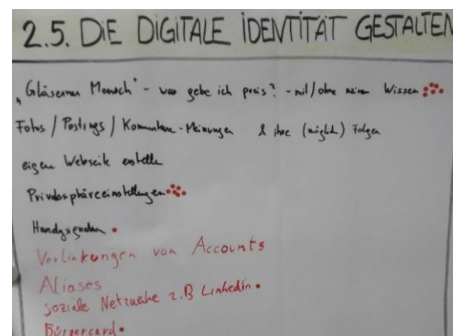 2.5. DIE DIGITALE IDENTITÄT GESTALTEN
"Gläserner Mensch" - was gebe ich preis? - mit/ohne mein Wissen
Fotos / Postings / Kommentare - Meinungen & ihre (möglich) Folgen
eigene Webseite erstellen
Privatsphäreeinstellungen
Handysignatur
Verlinkungen von Accounts
Aliases
soziale Netzwerke z.B LinkedIn
Bürgercard